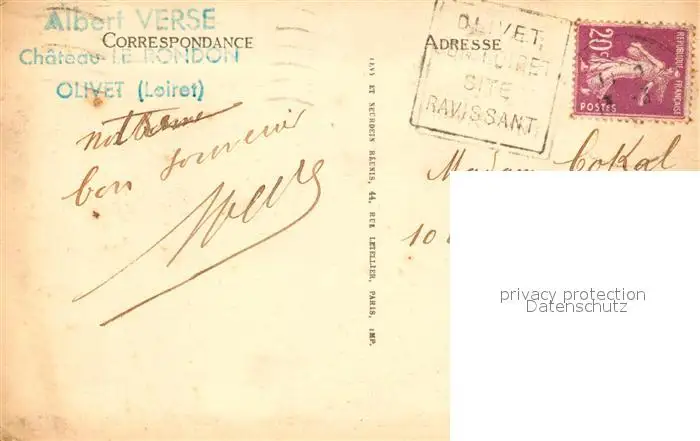 Albert VERSE
Château LE RONDON
OLIVET (Loiret)
CORRESPONDANCE
bon souvenir
LEVY ET NEURDEIN RÉUNIS, 44, RUE LETELLIER, PARIS, IMP.
ADRESSE
OLIVET
SITE
RAVISSANT
20c
POSTES
RÉPUBLIQUE FRANÇAISE
Madame Cokal
10
privacy protection
Datenschutz